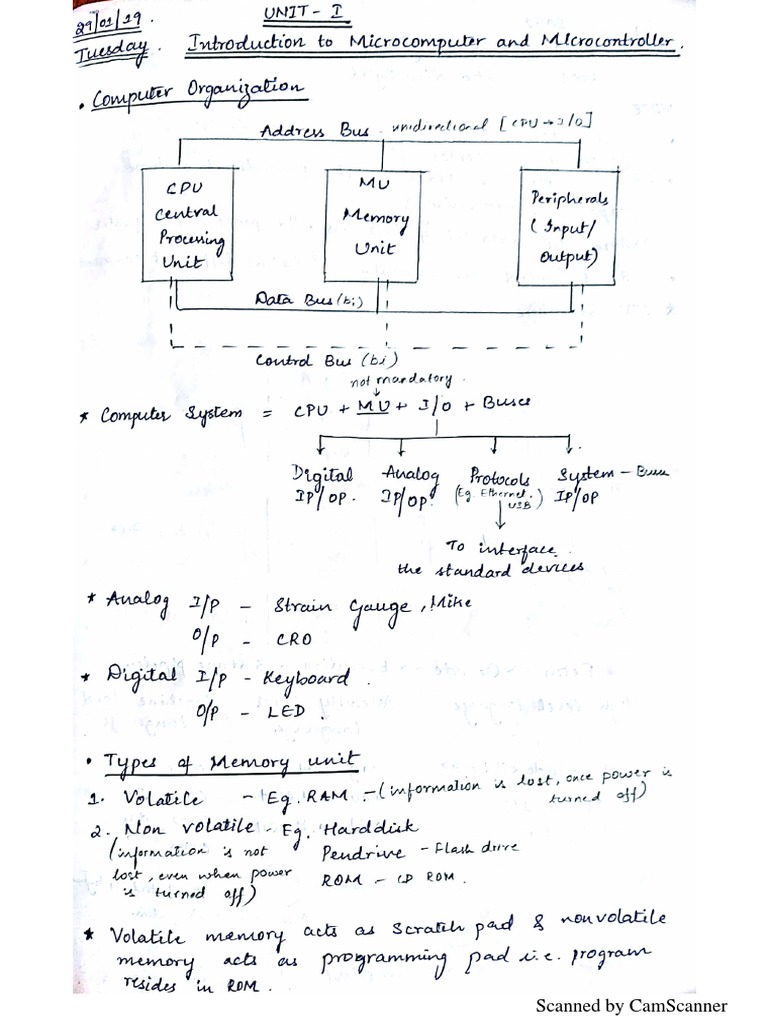 29/01/19.
UNIT - I
Tuesday. Introduction to Microcomputer and Microcontroller.
• Computer Organization
Address Bus - unidirectional [CPU → I/O]
CPU
Central
Processing
Unit
MU
Memory
Unit
Peripherals
(Input/
Output)
Data Bus (bi)
Control Bus (bi)
not mandatory.
* Computer System = CPU + MU + I/O + Buses
Digital
IP/OP.
Analog
IP/OP.
Protocols
(Eg. Ethernet.
USB)
System - Buses
IP/OP
To interface
the standard devices
* Analog I/P - Strain Gauge, Mike
O/P - CRO
* Digital I/P - Keyboard.
O/P - LED.
• Types of Memory unit
1. Volatile - Eg. RAM - (information is lost, once power is
turned off)
2. Non volatile - Eg. Harddisk
(information is not
lost, even when power
is turned off)
Pendrive - Flash drive
ROM - CD ROM.
* Volatile memory acts as scratch pad & nonvolatile
memory acts as programming pad i.e. program
resides in ROM.
Scanned by CamScanner